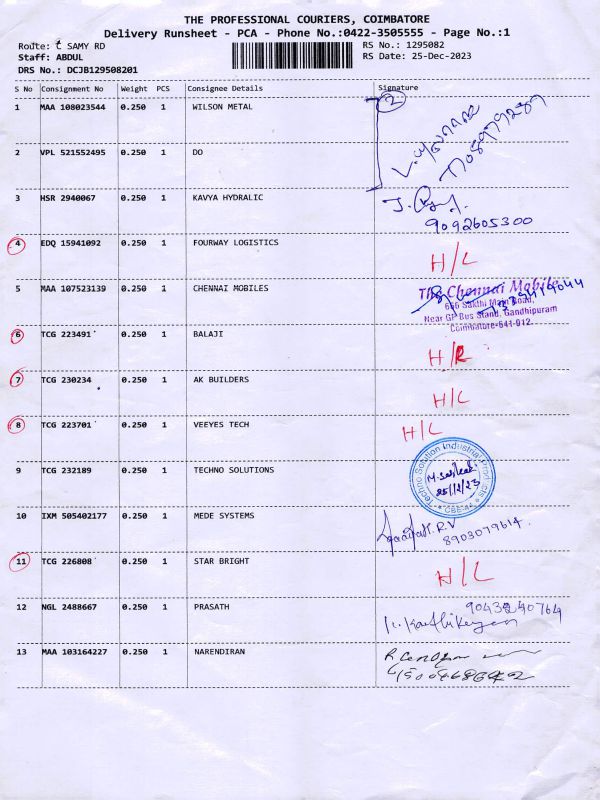 THE PROFESSIONAL COURIERS, COIMBATORE
Delivery Runsheet - PCA - Phone No.:0422-3505555 - Page No.:1
Route: C SAMY RD
RS No.: 1295082
Staff: ABDUL
RS Date: 25-Dec-2023
DRS No.: DCJB129508201
S No Consignment No Weight PCS Consignee Details Signature
1 MAA 108023544 0.250 1 WILSON METAL 2
2 VPL 521552495 0.250 1 DO
3 HSR 2940067 0.250 1 KAVYA HYDRALIC
9092605300
4 EDQ 15941092 0.250 1 FOURWAY LOGISTICS H/L
5 MAA 107523139 0.250 1 CHENNAI MOBILES
The Chennai Mobile
666 Sakthi Main Road,
Near GP Bus Stand, Gandhipuram
Coimbatore-641 012.
6 TCG 223491 0.250 1 BALAJI
7 TCG 230234 0.250 1 AK BUILDERS H/L
8 TCG 223701 0.250 1 VEEYES TECH H/L
9 TCG 232189 0.250 1 TECHNO SOLUTIONS
Techno Solution Industrial Products
25/12/23
CBE-44
10 IXM 505402177 0.250 1 MEDE SYSTEMS
8903079614
11 TCG 226808 0.250 1 STAR BRIGHT H/L
12 NGL 2488667 0.250 1 PRASATH
9043240764
K. Karthikeyan
13 MAA 103164227 0.250 1 NARENDIRAN